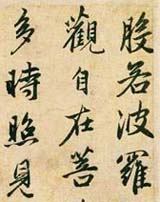 般若波羅
觀自在菩
多時照見